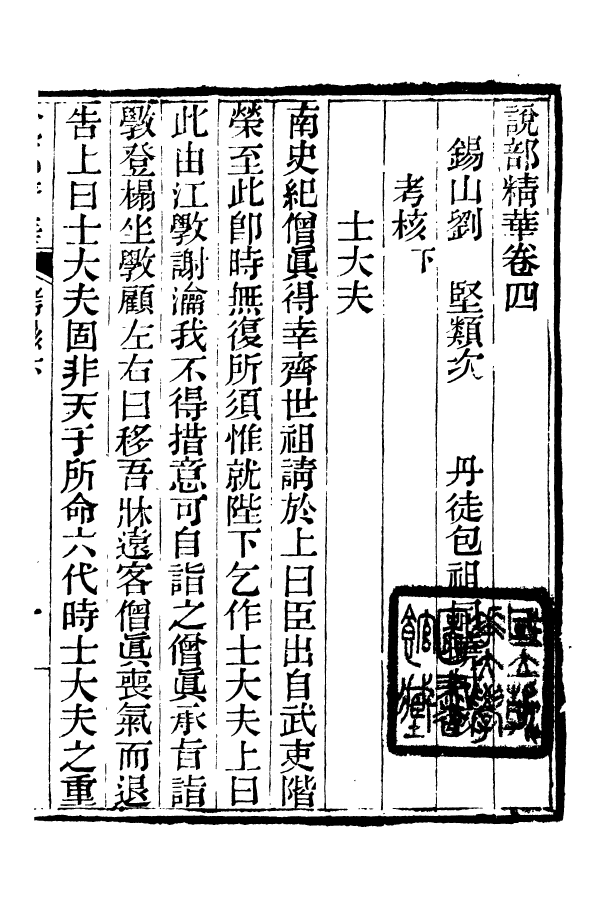 說部精華卷四
錫山劉 堅類次 丹徒包祖
考核下
士大夫
南史紀僧眞得幸齊世祖請於上曰臣出自武吏階
榮至此卽時無復所須惟就陛下乞作士大夫上曰
此由江斆謝瀹我不得措意可自詣之僧眞承旨詣
斆登榻坐斆顧左右曰移吾牀遠客僧眞喪氣而退
告上曰士大夫固非天子所命六代時士大夫之重